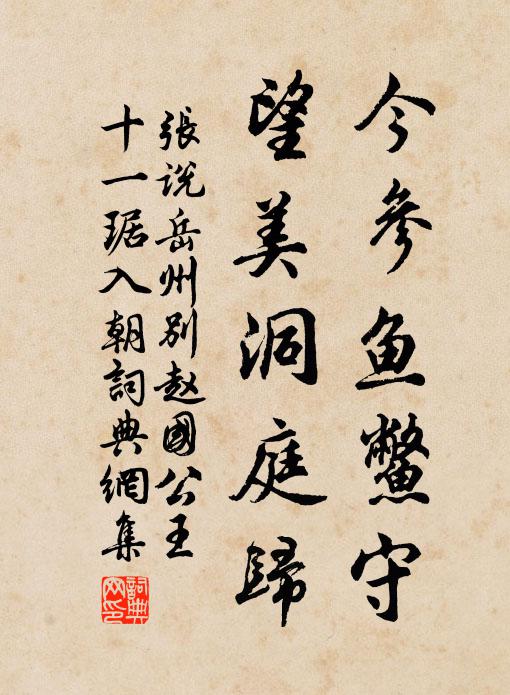 今參鱼鳖守
望美洞庭歸
張说岳州别赵國公王
十一琚入朝詞典網集
詞典網印